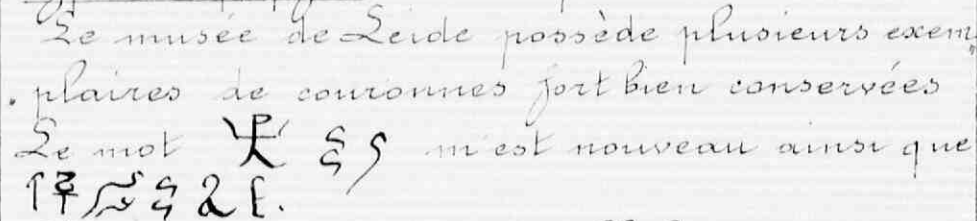 Le musée de Leide possède plusieurs exem
plaires de couronnes fort bien conservées
Le mot m'est nouveau ainsi que